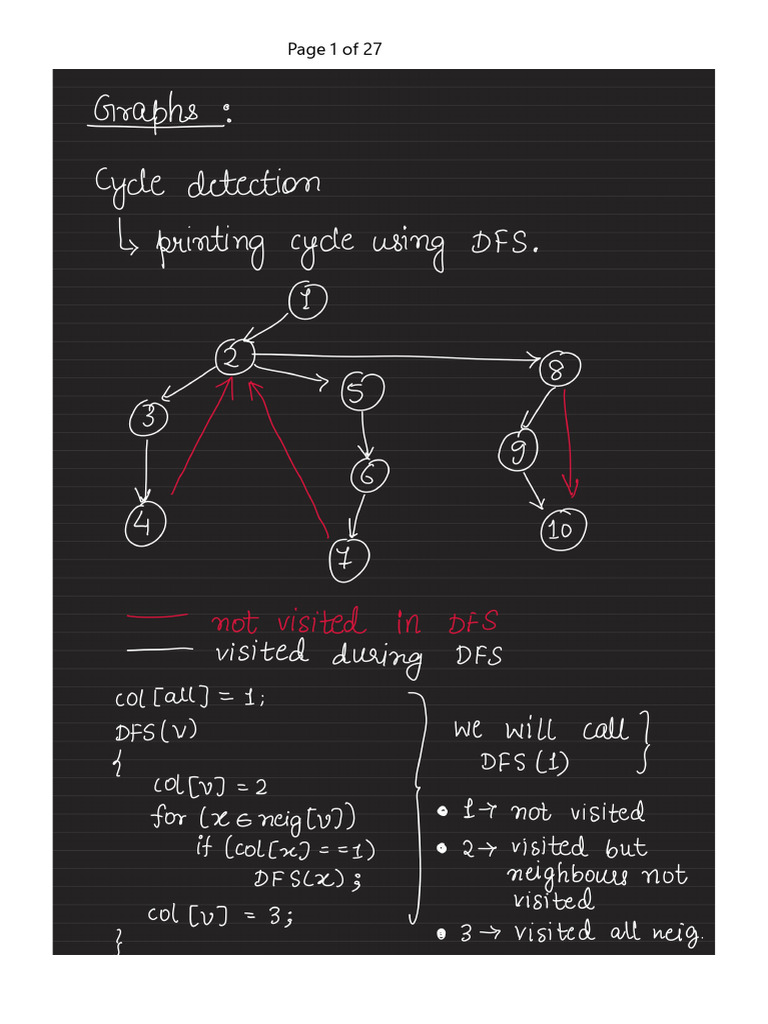 Page 1 of 27
Graphs :
Cycle detection
↳ printing cycle using DFS.
1
2
8
5
3
9
6
4
10
7
— not visited in DFS
— visited during DFS
col[all] = 1;
DFS(v)
{
col[v] = 2
for (x ∈ neig[v])
if (col[x] == 1)
DFS(x);
col[v] = 3;
}
we will call
DFS(1)
• 1 → not visited
• 2 → visited but
neighbours not
visited
• 3 → visited all neig.